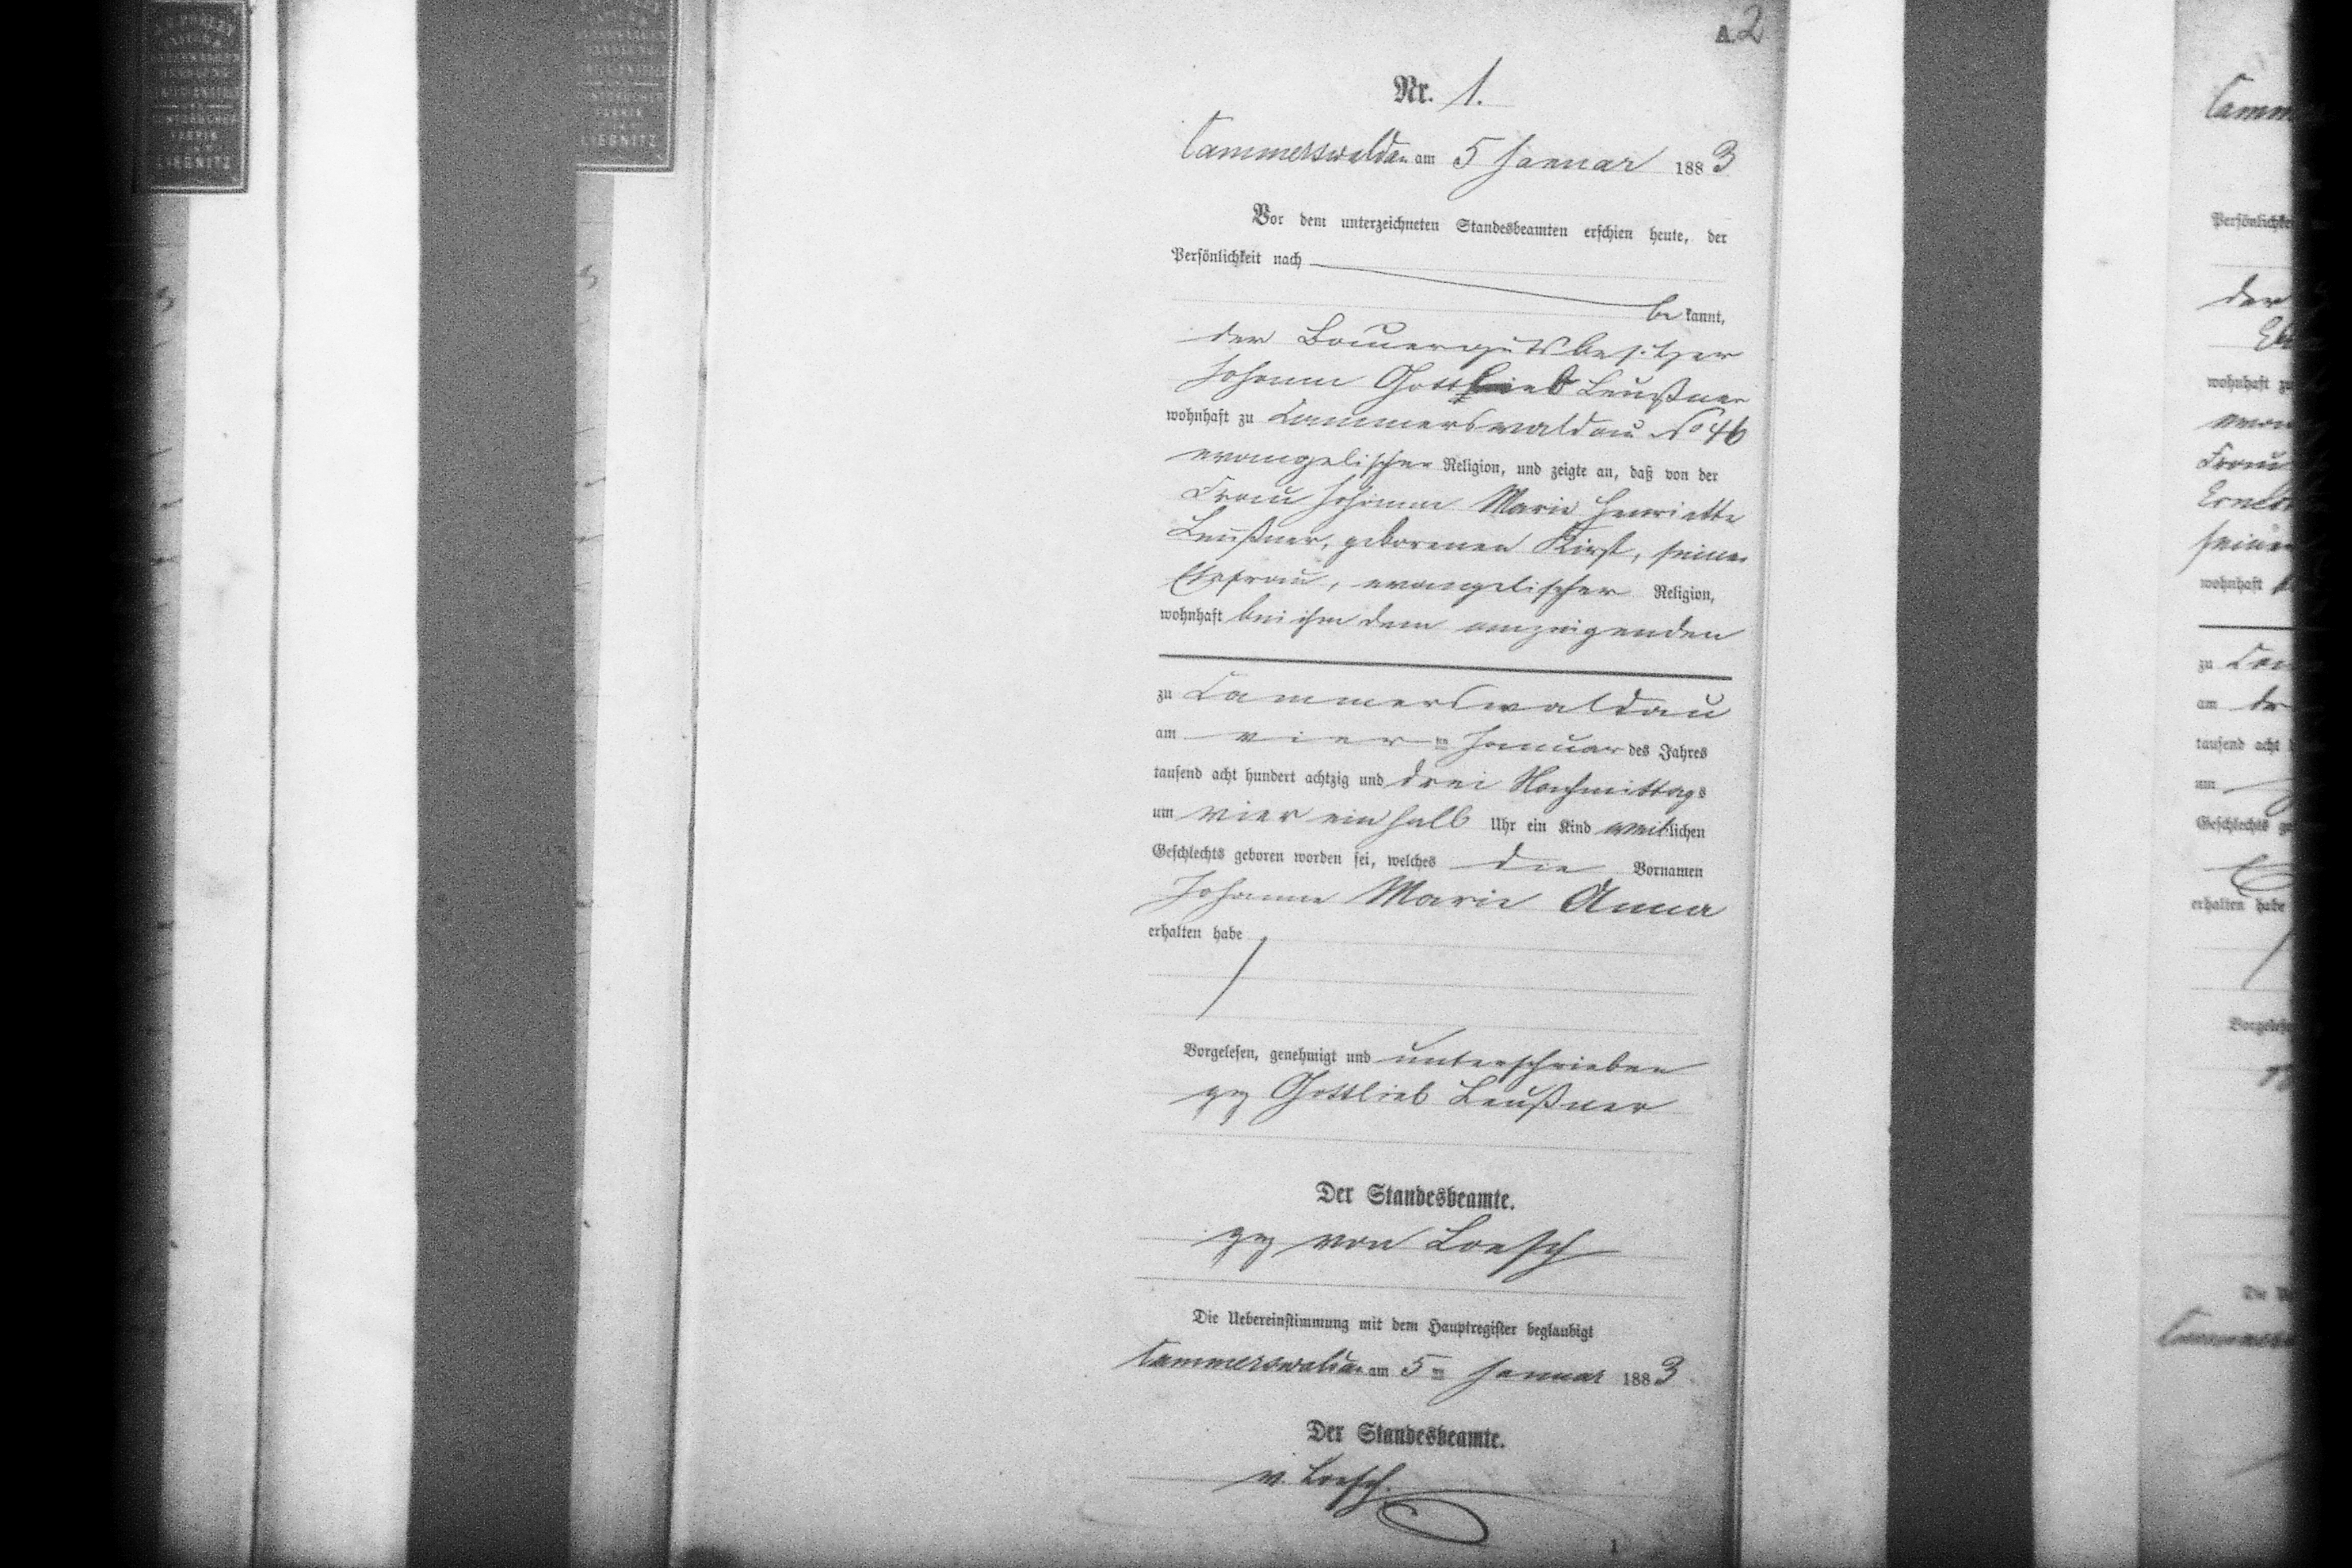 A. 2
Nr. 1.
Cammerswaldau am 5 Januar 1883
Vor dem unterzeichneten Standesbeamten erschien heute, der
Persönlichkeit nach
be kannt,
der Bauergutsbesitzer
Johann Gottlieb Leußner
wohnhaft zu Cammerswaldau No 46
evangelischer Religion, und zeigte an, daß von der
Frau Johanne Marie Henriette
Leußner, geborenen Kirst, seiner
Ehefrau, evangelischer Religion,
wohnhaft bei ihm dem anzeigenden
zu Cammerswaldau
am vier ten Januar des Jahres
tausend acht hundert achtzig und drei Nachmittags
um vier ein halb Uhr ein Kind weiblichen
Geschlechts geboren worden sei, welches die Vornamen
Johanne Marie Anna
erhalten habe
Vorgelesen, genehmigt und unterschrieben
gez Gottlieb Leußner
Der Standesbeamte.
gez von Loesch
Die Uebereinstimmung mit dem Hauptregister beglaubigt
Cammerswaldau am 5 ten Januar 1883
Der Standesbeamte.
v. Loesch.
1
LIEGNITZ
LIEGNITZ
Camm
Persönlichke
der
wohnhaft zu
Frau
Ernest
seiner
wohnhaft
zu Cam
am
tausend acht
um
Geschlechts ge
erhalten habe
Vorgelese
Die
Cammers